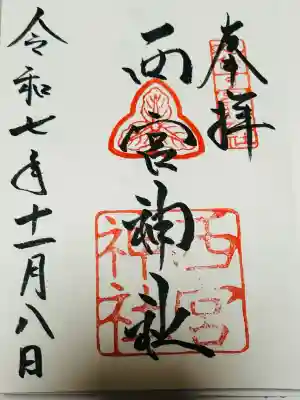 奉拝
西宮神社
西宮
神社
令和七年十一月八日